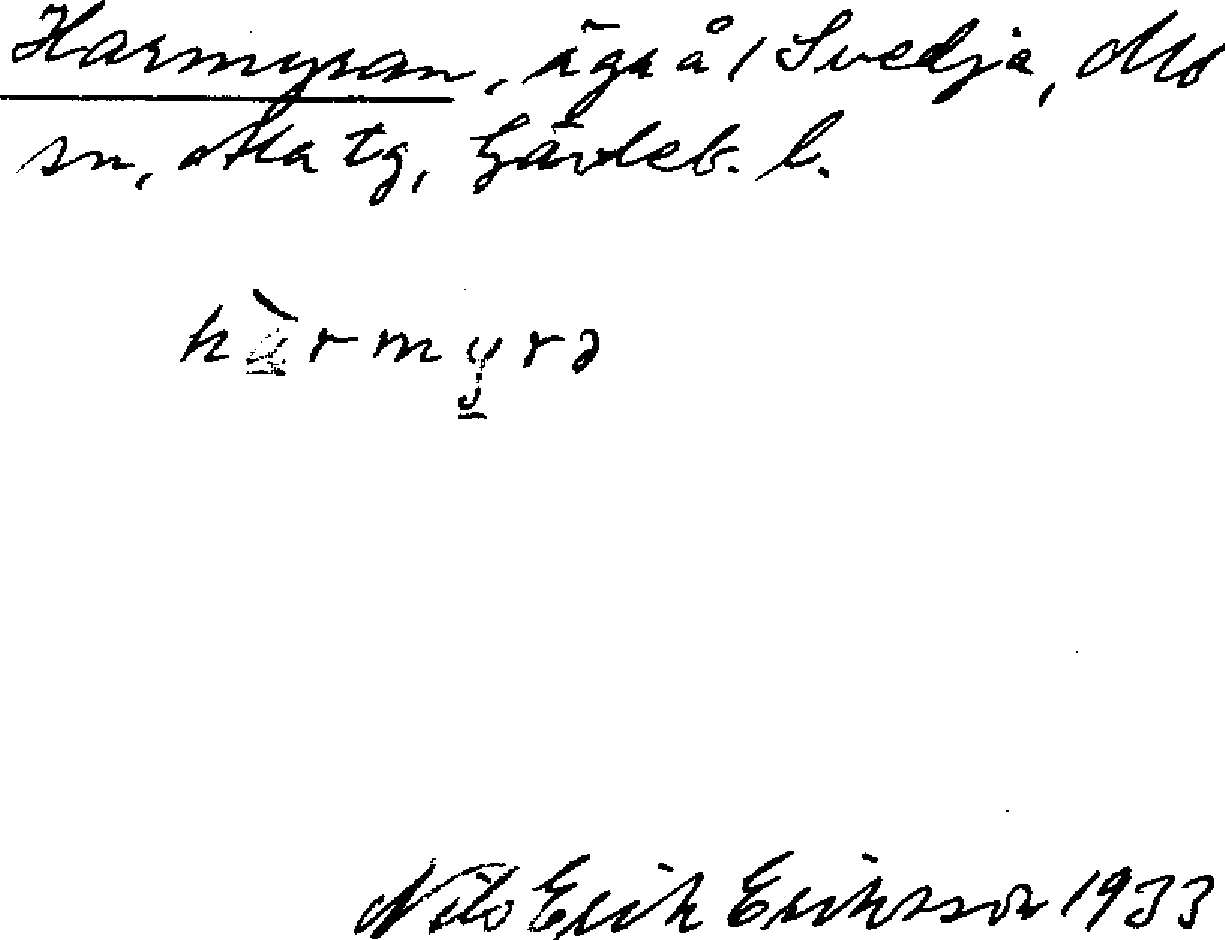 Harmyran, äga å / Svedja, Mo
sn, Ala tg, Gävleb. l.
hàrmyrə
Nils Erik Eriksson 1933